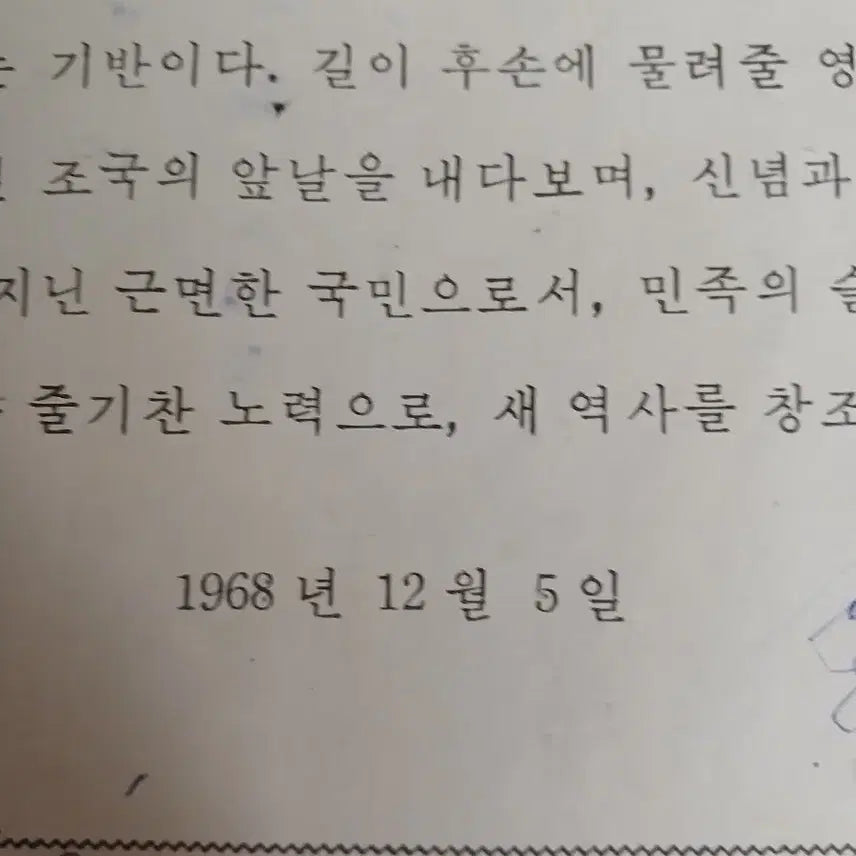 기반이다. 길이 후손에 물려줄 영
조국의 앞날을 내다보며, 신념과
지닌 근면한 국민으로서, 민족의 슬
줄기찬 노력으로, 새 역사를 창조
1968 년 12 월 5 일